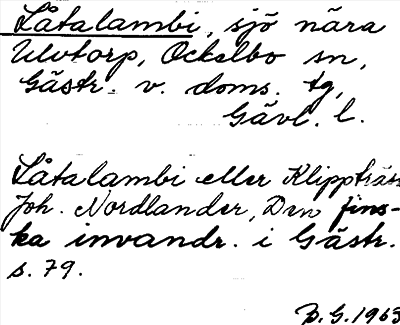 Låtalambi, sjö nära
Ulvtorp, Ockelbo sn,
Gästr. v. doms. tg,
Gävl. l.
Låtalambi eller Klippträsk
Joh. Nordlander, Den fins-
ka invandr. i Gästr.
s. 79.
B. G. 1963